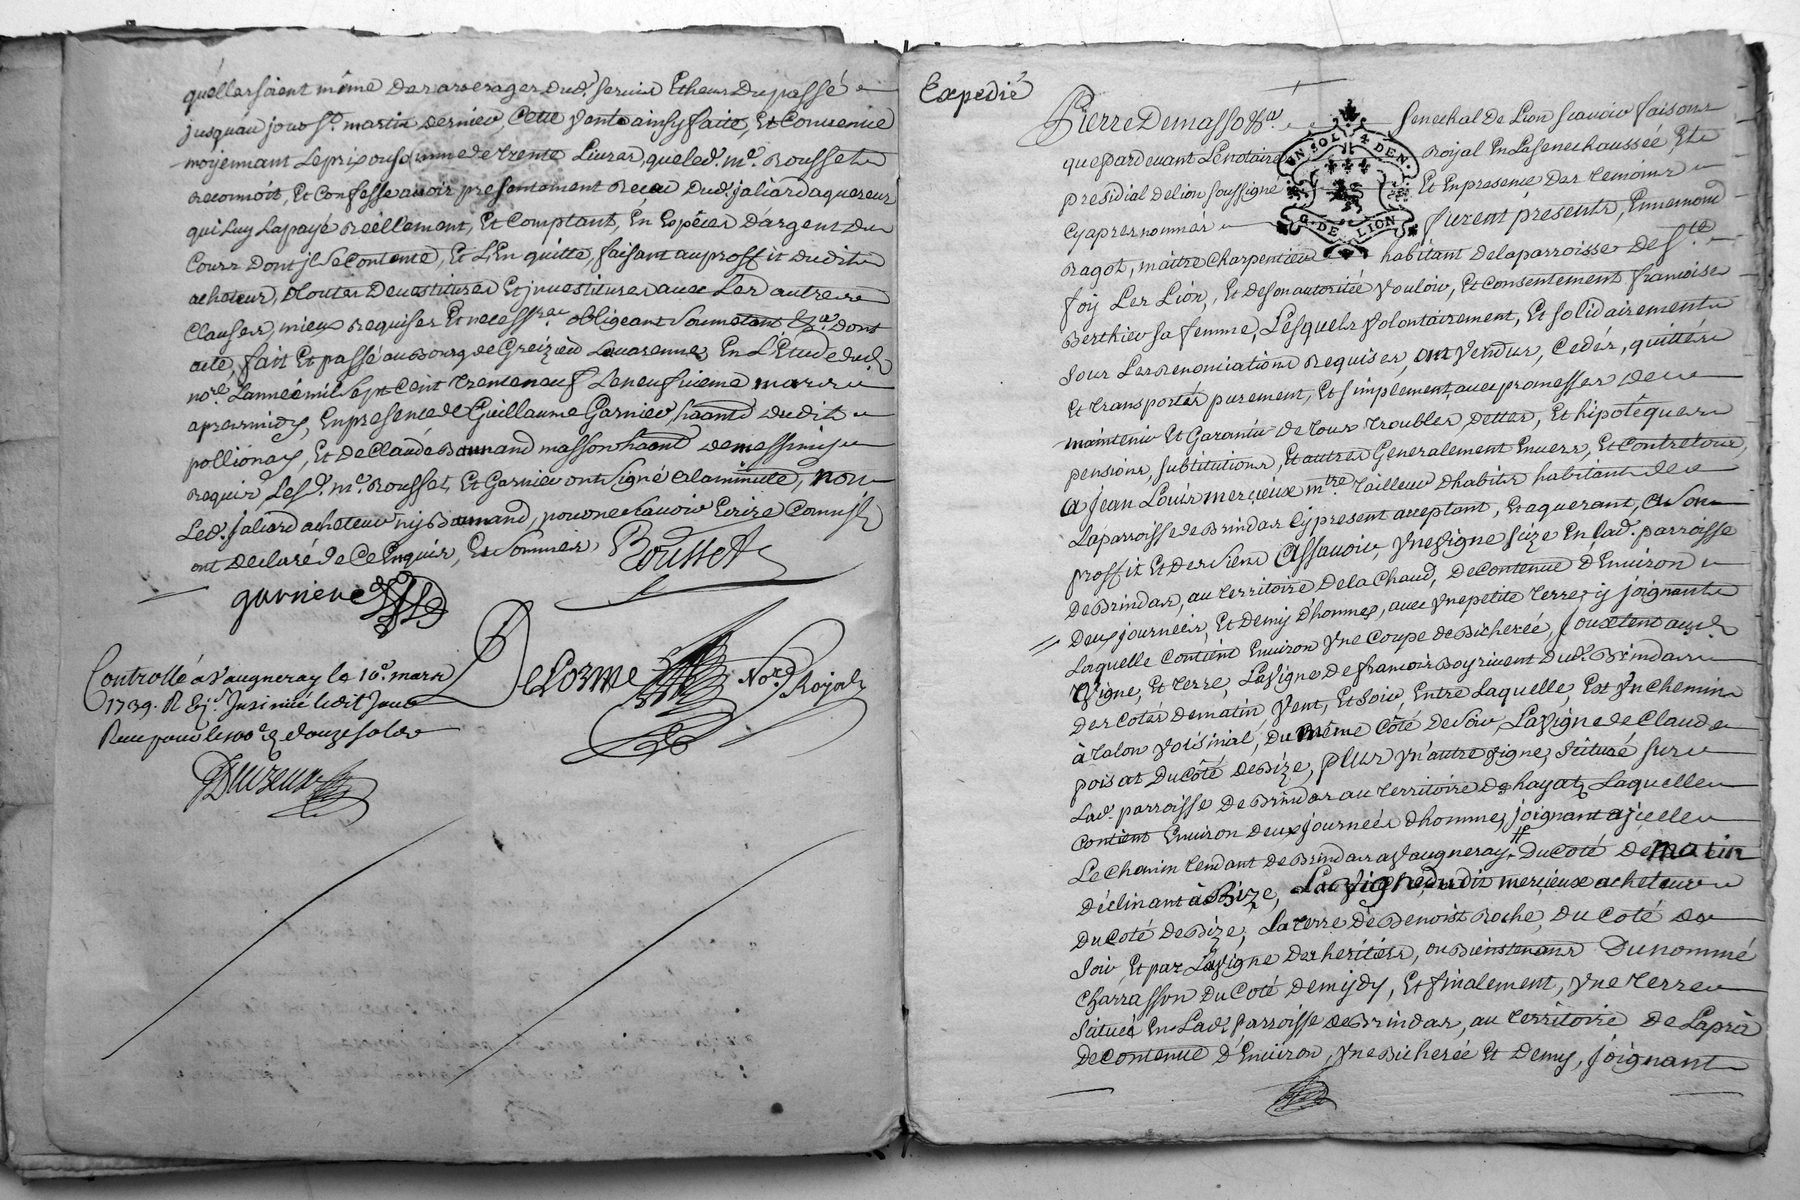 quelle soient même des arrerages dud. servis Etheus du passé
jusqu'au jour St. martin dernier, Cette vente ainsy faite, Et Convenue
moyennant Le prix ou somme de trente Livres, que led. me. Rousset
reconnoit, Et Confesse avoir presentement Reçeu dud. jaliard aquereur
qui Luy La payé Reéllement, Et Comptant, En Espéces D'argent du
Cours Dont jl se Contente, Et L'En quitte, faisant au proffit dudit
acheteur, toutes Devestitures Et jnvestitures avec Les autres
Clauses, mieux requises Et necessres. obligeant soumetant &a. dont
acte, fait Et passé au Bourg de Greizieu Lavarenne, En L'Etude dud.
nore. L'année mil sept Cent trente neuf Le neufvieme mars
apres midy, En presence de Guillaume Garnier haant. dudit
pollionay, Et de Claude Bonnand masson haant. de messimy
requis Led. me. Rousset, Et Garnier ont signé a la minutte, non
Led. jaliard acheteur ny Bonnand, pour ne sçavoir Ecrire Comm'jls
ont declaré de Ce Enquis, Et Sommés. Rousset
garnier
DeLorme Nore. Royal
Controllé a Vaugneray le 10e. mars
1739. R Ej. Insinué ledit Jour
Reçu pour le tout douze sols
Expedié
Pierre Demasso &a. Senechal de Lion Scavoir faisons
que pardevant Le notaire Royal En La Senechaussée Et
presidial de Lion soussigné Et En presence Des temoins
Cy apres nommés furent presents, Ennemond
Ragot, maitre Charpentier habitant de la parroisse de Ste.
foy Les Lion, Et de son autorité vouloir, Et consentement francoise
Berthier sa femme, Lesquels volontairement, Et solidairement
sous Les renonciations Requises, ont vendus, Cedés, quittés
Et transportés purement, Et simplement, avec promesses de
maintenir Et Garantir de tous troubles, dettes, Et hipotéques
pensions, substitutions, Et autres Generalement Envers, Et Contre tous
A Jean Louis mercieux mtre. tailleur d'habits habitant de
La parroisse de Brindas Cy present acceptant, Et aquerant, A son
proffit Et des siens Assavoir, Une vigne size En Lad. parroisse
de Brindas, au territoire de la Chaud, de Contenue d'Environ
Deux journeés, Et demy d'hommes, avec Une petite terre, y joignant
Laquelle Contient Environ Une Coupe de Bicherée, jouxtent aux d.
Vigne, Et terre, La vigne de francois Boyrivent dud. Brindas
des Cotés de matin Vent, Et soir, Entre Laquelle, Est Un Chemin
à talon voisinal, du même Côté de soir, La Vigne de Claude
poisat du Côté de Bize, plus Un'autre vigne, scituée sur
Lad. parroisse de Brindas au territoire de hayat, Laquelle
Contient Environ deux journeés d'hommes, joignant a jcelle
Le Chemin tendant de Brindas a Vaugneray, du Coté de matin
Déclinant à Bize, La vigne dudit merçieux acheteur
du Coté de Bize, La terre de Benoist Roche, du Coté de
soir, Et par La vigne des heritiers, ou Bientenans Du nommé
Charrasson du Coté de mydy, Et finalement, Une terre
scituée En Lad. parroisse de Brindas, au territoire de La pras
de Contenue d'Environ, Une Bicherée Et demy, joignant
EN SOL 4 DEN.
G. DE LION